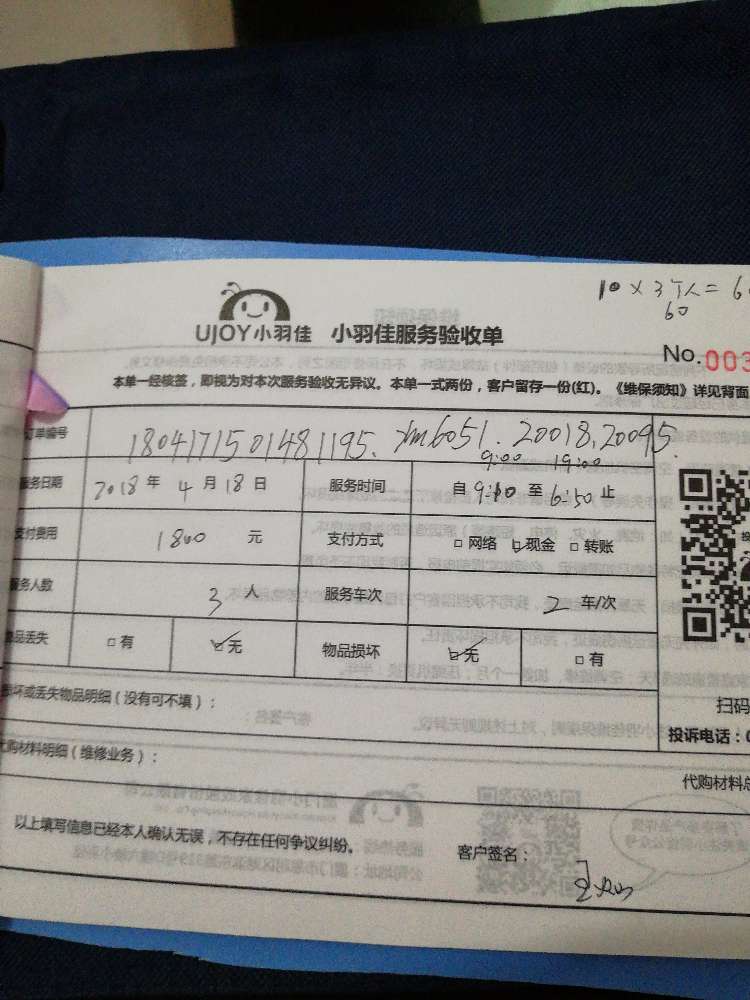 10×3个人=6
60
UJOY小羽佳 小羽佳服务验收单
No.003
本单一经核签，即视为对本次服务验收无异议。本单一式两份，客户留存一份(红)。《维保须知》详见背面
订单编号 1804171501481195. xm6051.20018.20095.
9:00 19:00
服务日期 2018 年 4 月 18 日 服务时间 自 9:10 至 6:50 止
支付费用 1800 元 支付方式 □网络 □现金 □转账
服务人数 3 人 服务车次 2 车/次
物品丢失 □有 ☑无 物品损坏 ☑无 □有
损坏或丢失物品明细（没有可不填）：
扫码
投诉电话：0
代购材料明细（维修业务）：
代购材料总
以上填写信息已经本人确认无误，不存在任何争议纠纷。
客户签名：